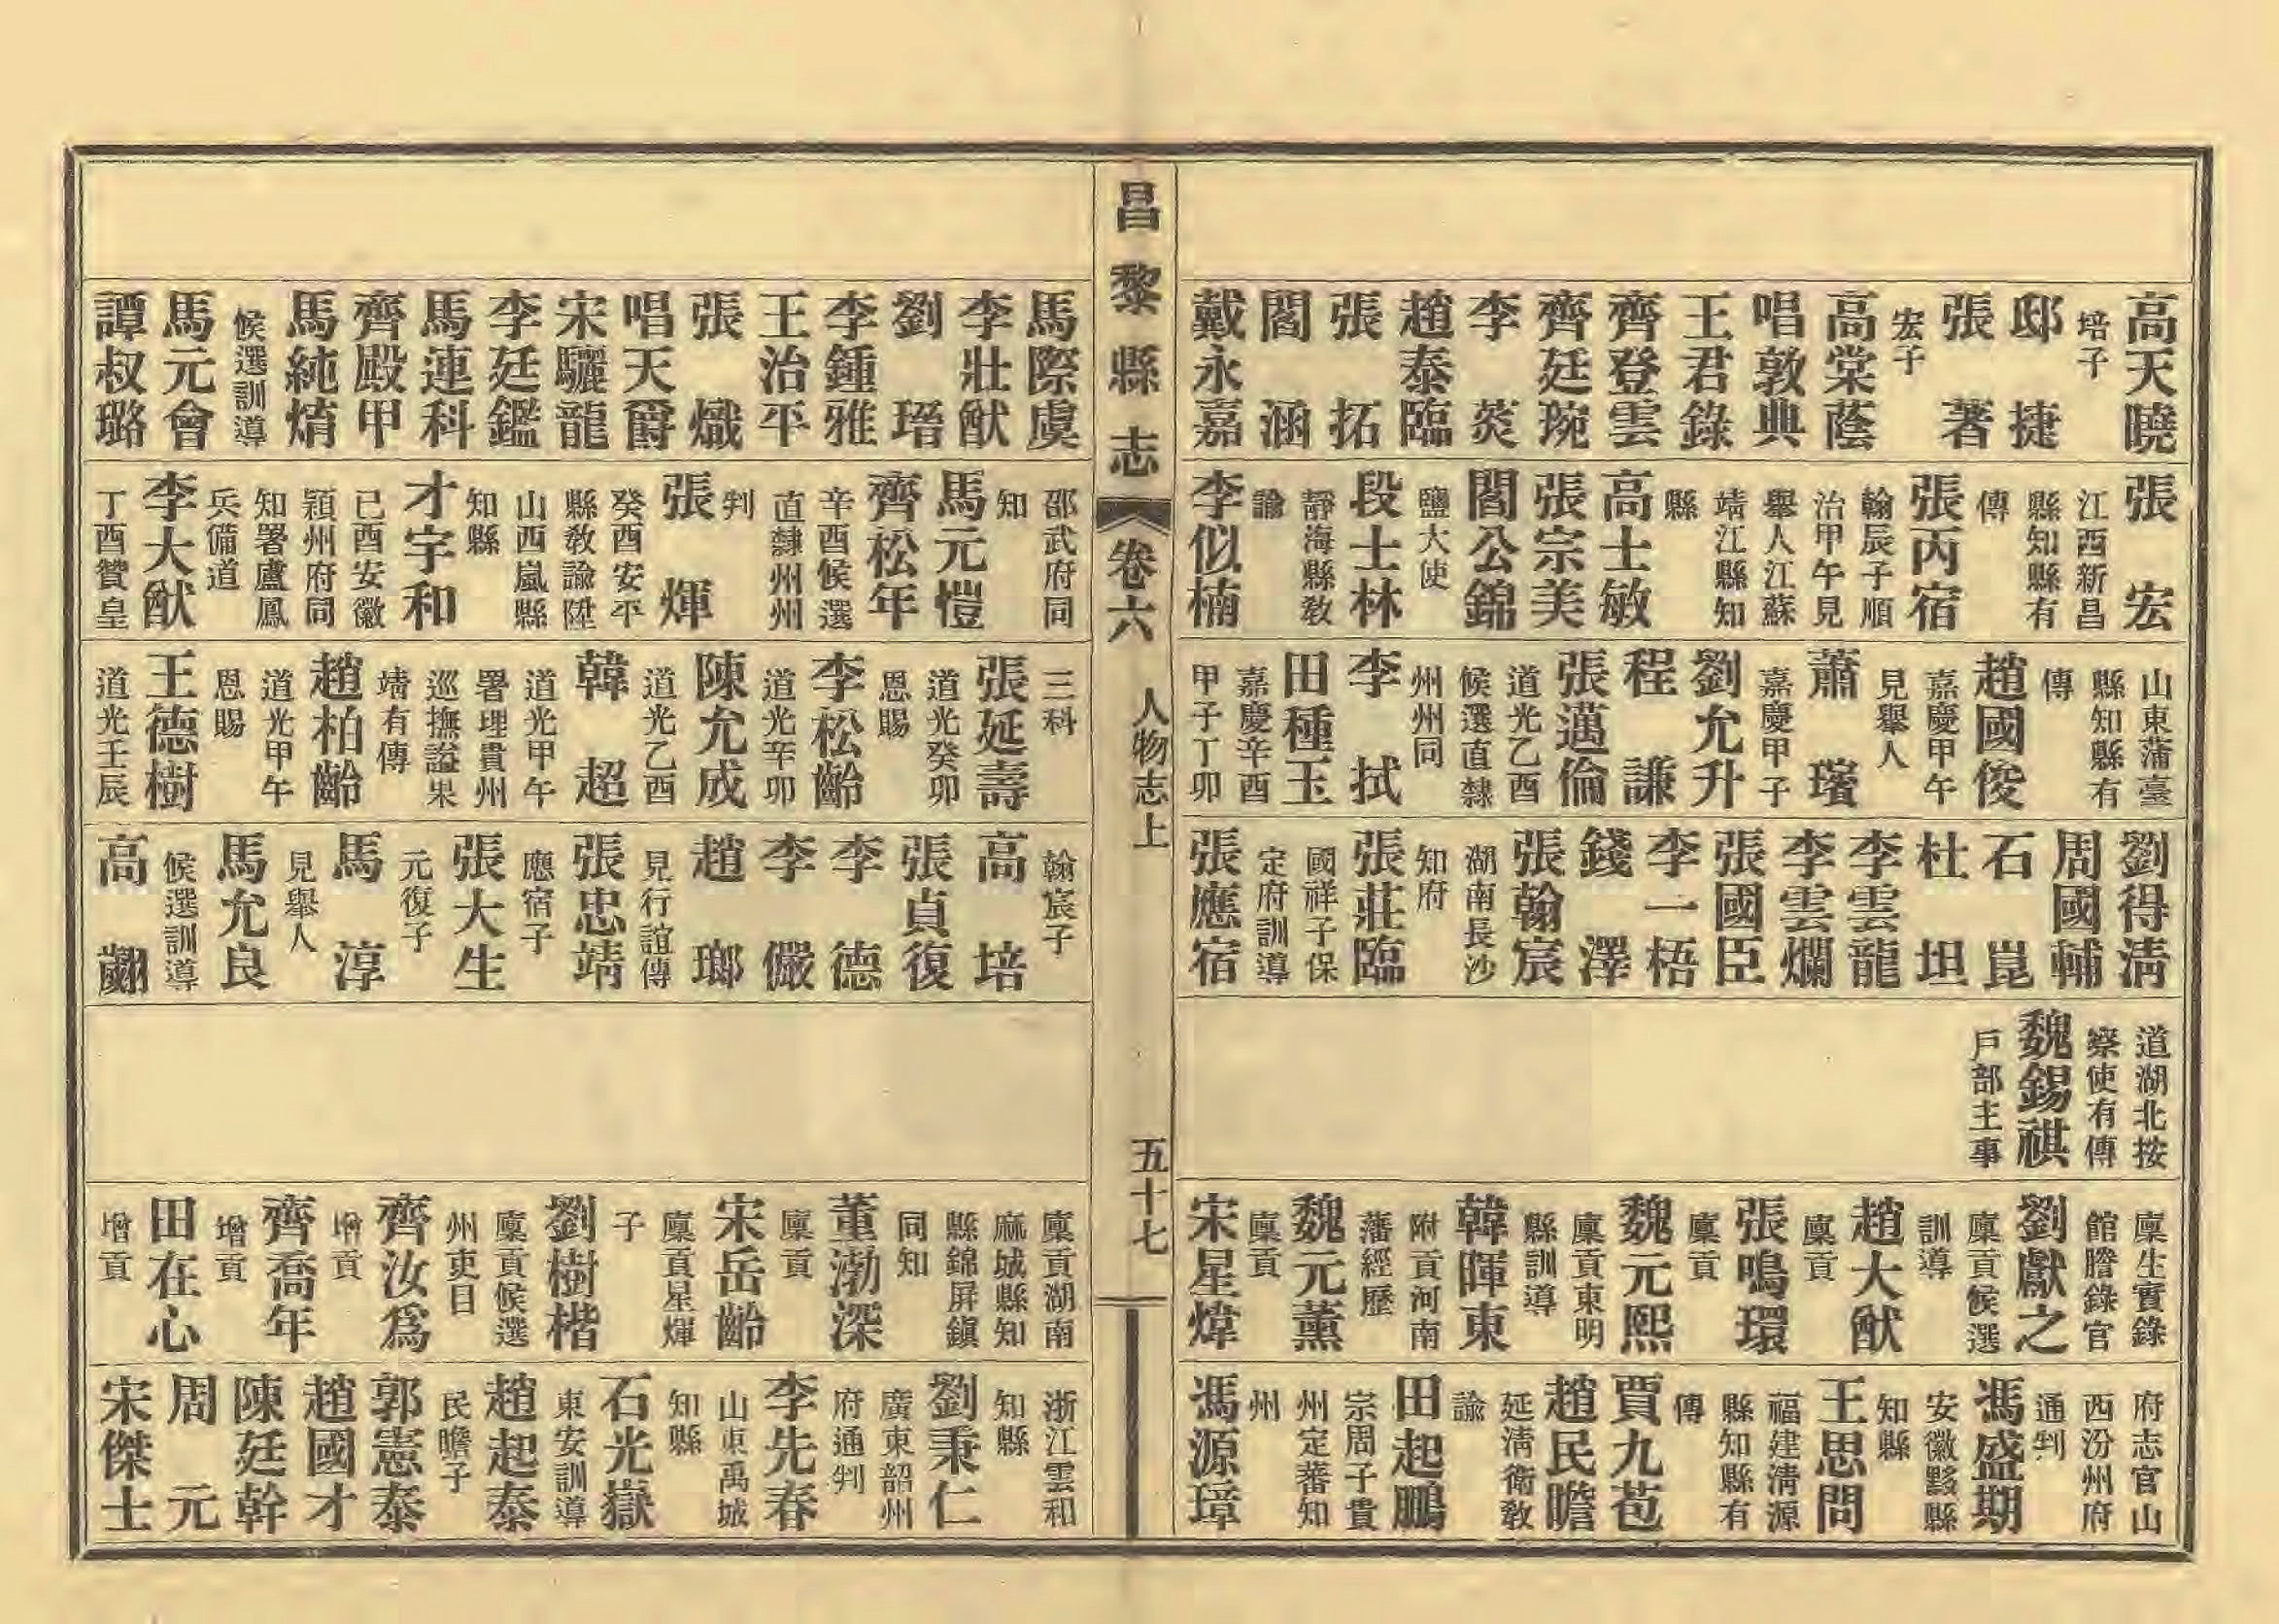 高天曉
培子
邸捷
張著
宏子
高棠蔭
唱敦典
王君錄
齊登雲
齊廷琬
李炎
趙泰臨
張拓
閻涵
戴永嘉
張宏
江西新昌
縣知縣有
傳
張丙宿
翰辰子順
治甲午見
舉人江蘇
靖江縣知
縣
高士敏
張宗美
閻公錦
鹽大使
段士林
靜海縣敎
諭
李似楠
山東蒲臺
縣知縣有
傳
趙國俊
嘉慶甲午
見舉人
蕭璸
嘉慶甲子
劉允升
程謙
張邁倫
道光乙酉
候選直隸
州州同
李拭
田種玉
嘉慶辛酉
甲子丁卯
劉得淸
周國輔
石崑
杜坦
李雲龍
李雲爛
張國臣
李一梧
錢澤
張翰宸
湖南長沙
知府
張莊臨
國祥子保
定府訓導
張應宿
道湖北按
察使有傳
魏錫祺
戶部主事
廩生實錄
館謄錄官
劉獻之
廩貢候選
訓導
趙大猷
廩貢
張鳴環
廩貢
魏元熙
廩貢東明
縣訓導
韓暉東
附貢河南
藩經歷
魏元薰
廩貢
宋星煒
府志官山
西汾州府
通判
馮盛期
安徽黟縣
知縣
王思問
福建淸源
縣知縣有
傳
賈九苞
趙民瞻
延淸衛敎
諭
田起鵬
宗周子貴
州定蕃知
州
馮源璋
昌黎縣志
卷六
人物志上
五十七
馬際虞
李壯猷
劉琘
李鍾雅
王治平
張熾
唱天爵
宋驪龍
李廷鑑
馬連科
齊殿甲
馬純煟
候選訓導
馬元會
譚叔璐
邵武府同
知
馬元愷
齊松年
辛酉候選
直隸州州
判
張煇
癸酉安平
縣敎諭陞
山西嵐縣
知縣
才宇和
己酉安徽
潁州府同
知署盧鳳
兵備道
李大猷
丁酉贊皇
三科
張延壽
道光癸卯
恩賜
李松齡
道光辛卯
陳允成
道光乙酉
韓超
道光甲午
署理貴州
巡撫謚果
靖有傳
趙柏齡
道光甲午
恩賜
王德樹
道光壬辰
翰宸子
高培
張貞復
李德
李儼
趙瑯
見行誼傳
張忠靖
應宿子
張大生
元復子
馬淳
見舉人
馬允良
候選訓導
高翽
廩貢湖南
麻城縣知
縣錦屏鎭
同知
董渤深
廩貢
宋岳齡
廩貢星煇
子
劉樹楷
廩貢候選
州吏目
齊汝爲
增貢
齊喬年
增貢
田在心
增貢
浙江雲和
知縣
劉秉仁
廣東韶州
府通判
李先春
山東禹城
知縣
石光嶽
東安訓導
趙起泰
民瞻子
郭憲泰
趙國才
陳廷幹
周元
宋傑士